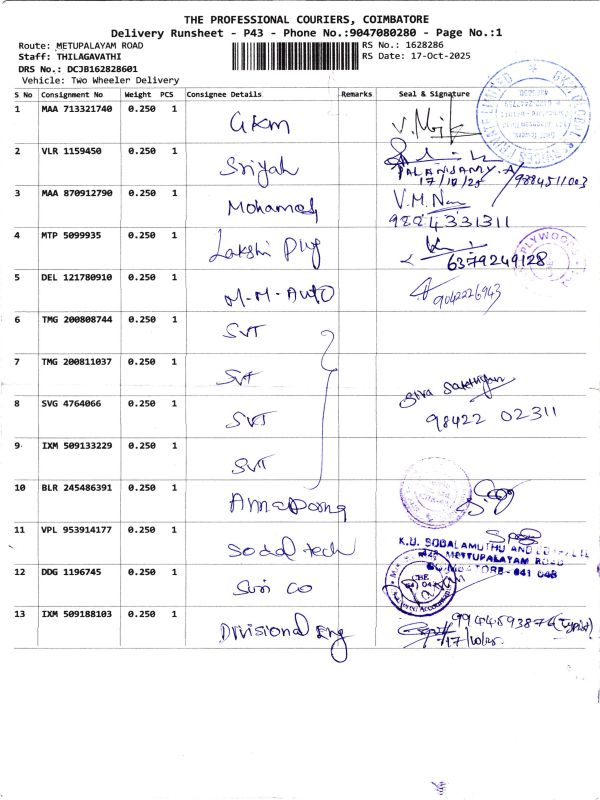 THE PROFESSIONAL COURIERS, COIMBATORE
Delivery Runsheet - P43 - Phone No.:9047080280 - Page No.:1
Route: METUPALAYAM ROAD
Staff: THILAGAVATHI
DRS No.: DCJB162828601
Vehicle: Two Wheeler Delivery
RS No.: 1628286
RS Date: 17-Oct-2025
S No Consignment No Weight PCS Consignee Details Remarks Seal & Signature
1 MAA 713321740 0.250 1 GKM
2 VLR 1159450 0.250 1 Sriyah PALANISAMY.A
17/10/25 /9884511003
3 MAA 870912790 0.250 1 Mohamed V.M.
9224331311
4 MTP 5099935 0.250 1 Lakshi Ply 6379249128
PLYWOOD
5 DEL 121780910 0.250 1 M-M-Auto 9042226943
6 TMG 200808744 0.250 1 SVT
7 TMG 200811037 0.250 1 SVT
8 SVG 4764066 0.250 1 SVT Siva
98422 02311
9 IXM 509133229 0.250 1 SVT
10 BLR 245486391 0.250 1
11 VPL 953914177 0.250 1 Sodal tech
K.U. SODALAMUTHU AND
METTUPALAYAM ROAD
COIMBATORE - 641 043
12 DDG 1196745 0.250 1 Sri Co
13 IXM 509188103 0.250 1 Divisional Eng 9944593876 (Typist)
17/10/25